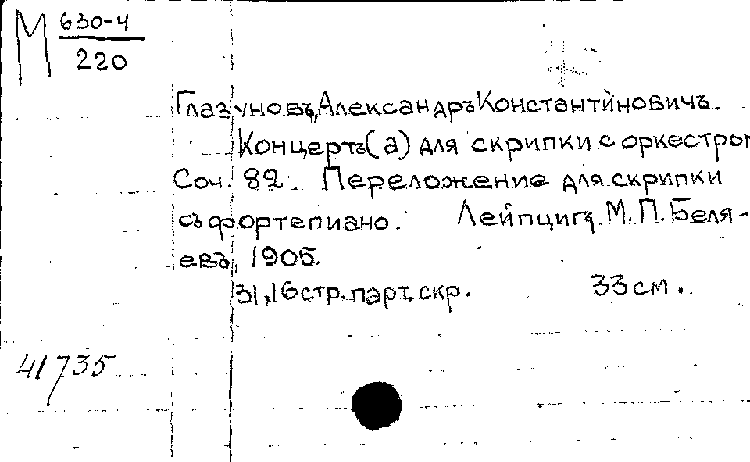 М 630-4
220
Глазуновъ, Александръ Константиновичъ.
Концертъ (а) для скрипки с оркестром
Соч. 82. Переложение для скрипки
съ фортепиано. Лейпцигъ. М. П. Беля-
евъ, 1905.
31, 16 стр. парт. скр. 33 см.
41735